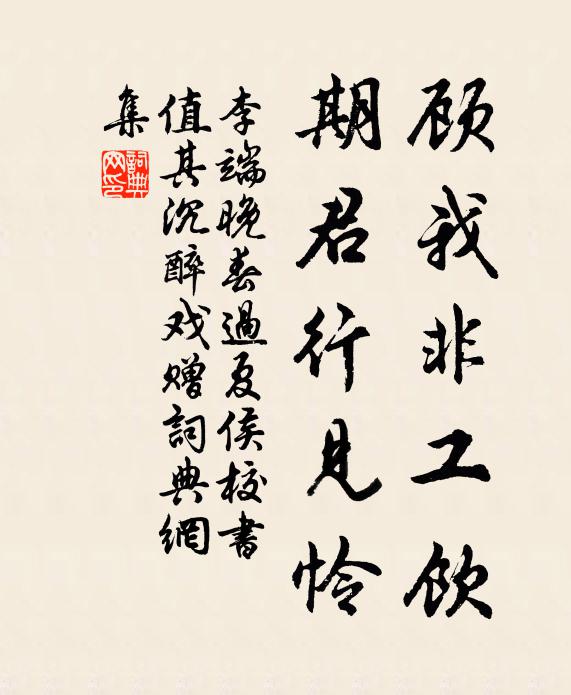 顾我非工饮
期君行见怜
李端晚春過夏侯校書
值其沉醉戏赠詞典網
集
詞典
网印